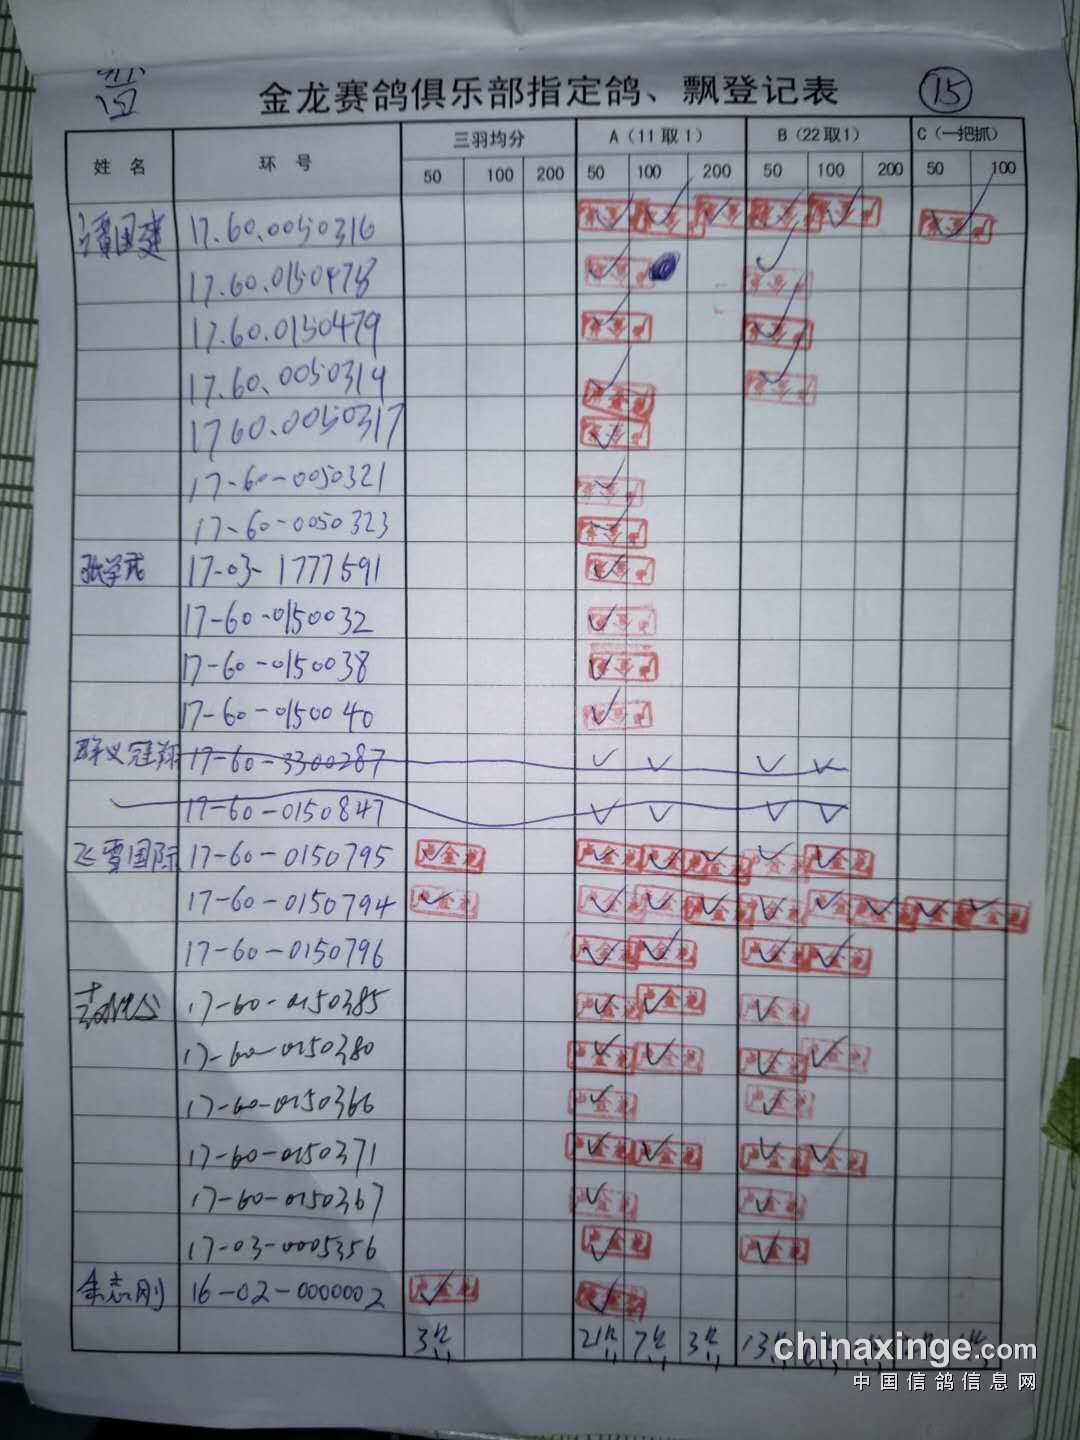 金龙赛鸽俱乐部指定鸽、飘登记表 15
姓 名 环 号 三羽均分 A(11取1) B(22取1) C(一把抓)
50 100 200 50 100 200 50 100 200 50 100
谭国建 17.60.0050316 ✓ ✓ ✓ ✓ ✓ ✓
17.60.0150478 ✓ ✓
17.60.0150479 ✓ ✓
17.60.0050314 ✓ ✓
1760.0050317 ✓
17-60-0050321 ✓
17-60-0050323 ✓
张学成 17-03-1777591 ✓
17-60-0150032 ✓
17-60-0150038 ✓
17-60-0150040 ✓
群义冠翔 17-60-3300287 ✓ ✓ ✓ ✓
17-60-0150847 ✓ ✓ ✓ ✓
飞雪国际 17-60-0150795 ✓ ✓ ✓ ✓ ✓ ✓
17-60-0150794 ✓ ✓ ✓ ✓ ✓ ✓ ✓ ✓ ✓
17-60-0150796 ✓ ✓ ✓ ✓
17-60-0150385 ✓ ✓ ✓
17-60-0150380 ✓ ✓ ✓ ✓
17-60-0150366 ✓ ✓
17-60-0150371 ✓ ✓ ✓ ✓
17-60-0150367 ✓ ✓
17-03-0005356 ✓ ✓
余志刚 16-02-0000002 ✓ ✓
3 21 7 3 13
chinaxinge.com
中国信鸽信息网